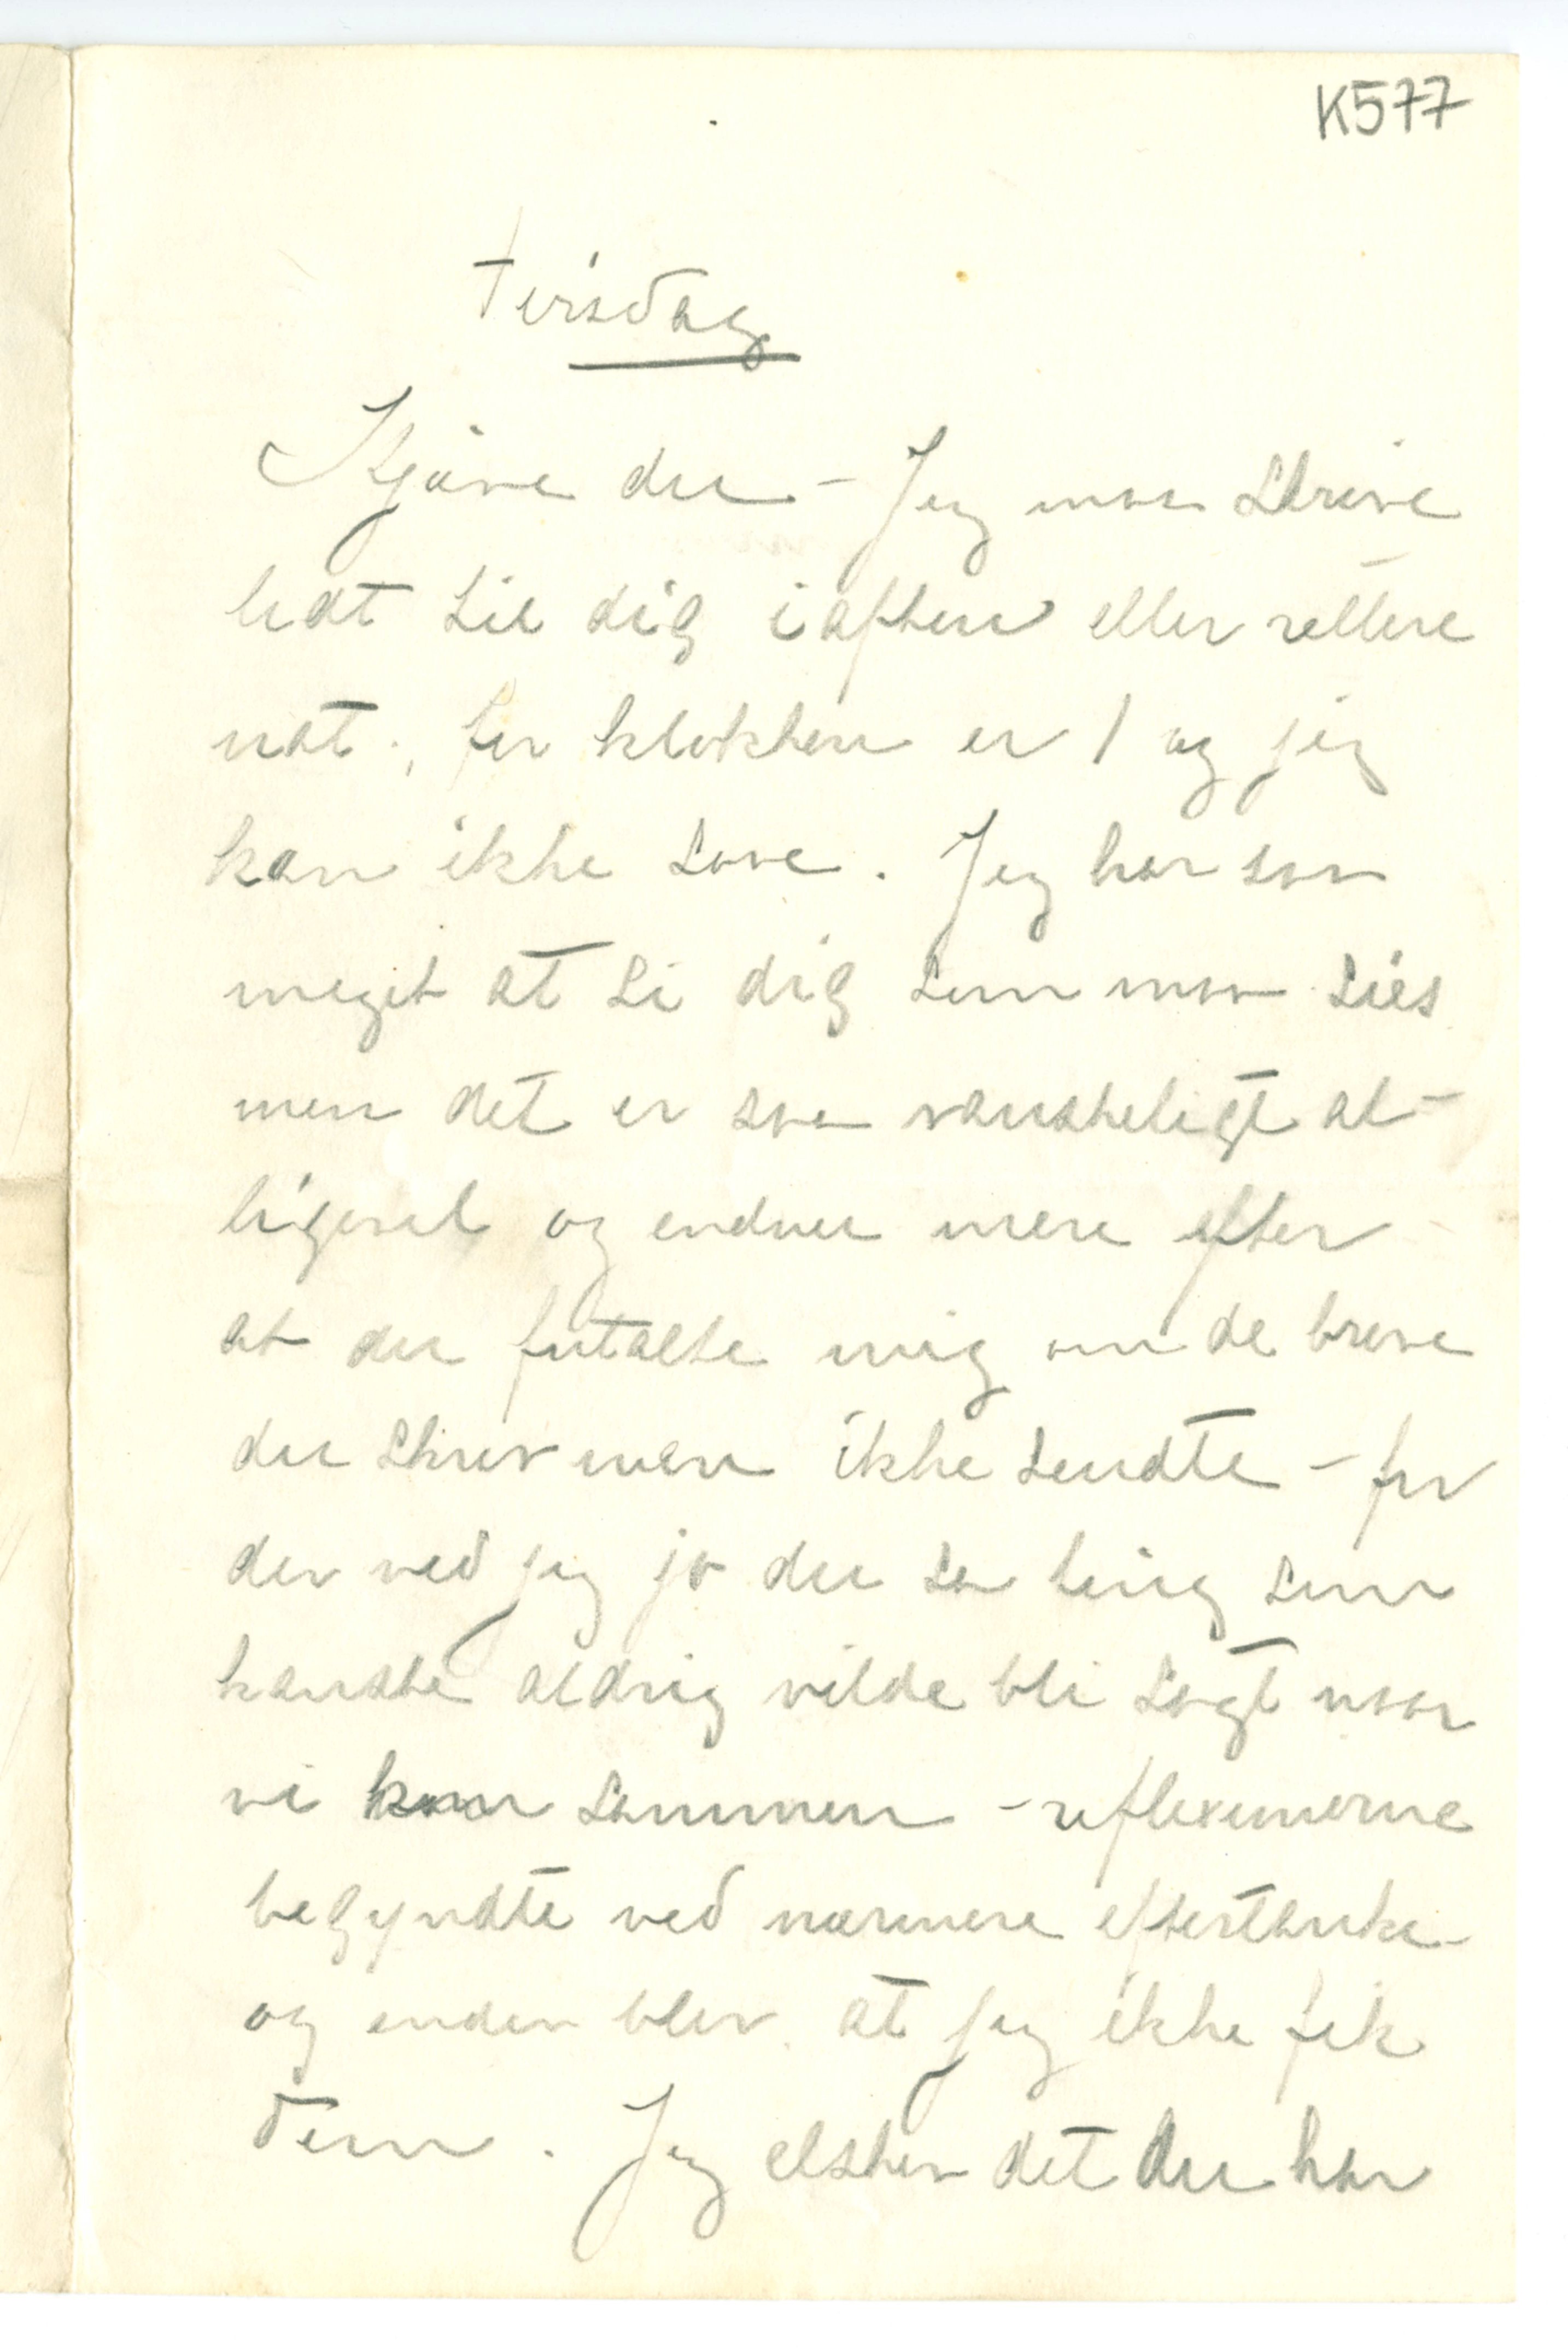 K577
Tirsdag
Kjære du – Jeg maa skrive
lidt til dig iaften eller rettere
nat, for klokken er 1 og jeg
kan ikke sove. Jeg har saa
meget at si dig som maa sies
men det er saa vanskeligt al-
ligevel og endnu mere efter
at du fortalte mig om de breve
du skrev men ikke sendte – for
der ved jeg jo du sa ting som
kanske aldrig vilde bli sagt naar
vi kom sammen – reflexionerne
begyndte ved nærmere eftertanke –
og enden blev at jeg ikke fik
dem. Jeg elsker det du har